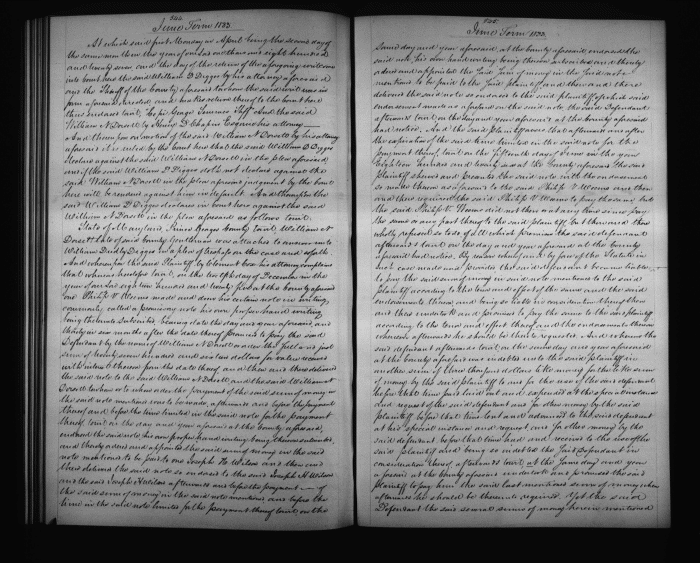 524
June Term 1833.
At which said first Monday in April being the second day of
the same month in the year of our Lord one thousand eight hundred
and twenty seven and the day of the return of the aforegoing writ came
into court here the said William D Digges by his attorney aforesaid
and the Sheriff of the County aforesaid to whom the said writ was in
form aforesaid directed and made return thereof to the Court here
thus endorsed to wit, "Cepi George Semmes Shff" And the said
William N Dorsett by
Esquire his attorney
And thereupon on motion of the said William N Dorsett by his attorney
aforesaid it is ruled by the Court here that the said William D Digges
declare against the said William N Dorsett in the plea aforesaid
and if the said William D Digges do not declare against the
said William N Dorsett in the plea aforesaid judgment by the Court
here will be rendered against him in default. And thereupon the
said William D Digges declares in Court here against the said
William N Dorsett in the plea aforesaid as follows to wit.
State of Maryland, Prince Georges County to wit, William N
Dorsett late of said County Gentleman was attached to answer unto
William Dudley Digges in a plea of trespass on the case and so forth
And whereupon the said Plaintiff by Clement Cox his attorney complains
that whereas heretofore to wit, on the twelfth day of December in the
year of our Lord eighteen hundred and twenty five at the County aforesaid
one Philip W Weems made and drew his certain note in writing,
commonly called a promissory note his own proper hand writing
being thereunto subscribed bearing date the day and year aforesaid, and
thereby in six months after the date thereof promised to pay the said
Defendant by the name of William N Dorsett or order the full and just
sum of
hundred and
dollars for value received
with interest thereon from the date thereof and then and there delivered
the said note to the said William N Dorsett and the said William N
Dorsett to whom or to whose order the payment of the said sum of money in
the said note mentioned was to be made, afterwards and before the payment
thereof and before the time limited in the said note for the payment
thereof to wit on the day and year aforesaid at the County aforesaid
endorsed the said note his own proper hand writing being thereunto subscribed,
and thereby ordered and appointed the said sum of money in the said
note mentioned to be paid to one Joseph H Wilson and then and
there delivered the said note so endorsed to the said Joseph H Wilson
and the said Joseph H Wilson afterwards and before the payment of
the said sum of money in the said note mentioned and before the
time in the said note limited for the payment thereof to wit on the
525
June Term 1833.
same day and year aforesaid, at the County aforesaid endorsed the
said note his own hand writing being thereon subscribed and thereby
ordered and appointed the said sum of money in the said note
mentioned to be paid to the said plaintiff and then and there
delivered the said note so endorsed to the said plaintiff of which said
endorsement made as aforesaid on the said note the said Defendant
afterwards to wit on the day and year aforesaid at the County aforesaid
had notice. And the said Plaintiff avers that afterwards and after
the expiration of the said time limited in the said note for the
payment thereof to wit on the fifteenth day of June in the year
eighteen hundred and twenty six at the County aforesaid the said
Plaintiff shewed and presented the said note with the endorsement
so made thereon as aforesaid to the said Philip W Weems and then
and there required the said Philip W Weems to pay the same but
the said Philip W Weems did not then or at any time since pay
the same or any part thereof to the said plaintiff but then and there
wholly refused so to do of all which premises the said defendant
afterwards to wit on the day and year aforesaid at the County
aforesaid had notice. By reason whereof and by force of the Statute in
such case made and provided the said defendant became liable
to pay the said sum of money in said note mentioned to the said
plaintiff according to the tenor and effect of the same and the said
endorsements thereon and being so liable in consideration thereof then
and there undertook and promised to pay the same to the said plaintiff
according to the tenor and effect thereof and the endorsements thereon
whenever afterwards he should be thereto requested. And whereas the
said defendant afterwards to wit on the same day and year aforesaid
at the County aforesaid was indebted unto the said plaintiff in
another sum of three thousand dollars like money for the like sum
of money by the said plaintiff to and for the use of the said defendant
before that time paid laid out and expended at the special instance
and request of the said defendant and for other money by the said
plaintiff before that time lent and advanced to the said defendant
at his special instance and request and for other money by the
said defendant before that time had and received to the use of the
said plaintiff and being so indebted the said defendant in
consideration thereof afterwards to wit at the same day and year
aforesaid at the County aforesaid undertook and promised the said
Plaintiff to pay him the said last mentioned sum of money when
afterwards he should be thereunto required. Yet the said
Defendant the said several sums of money herein mentioned